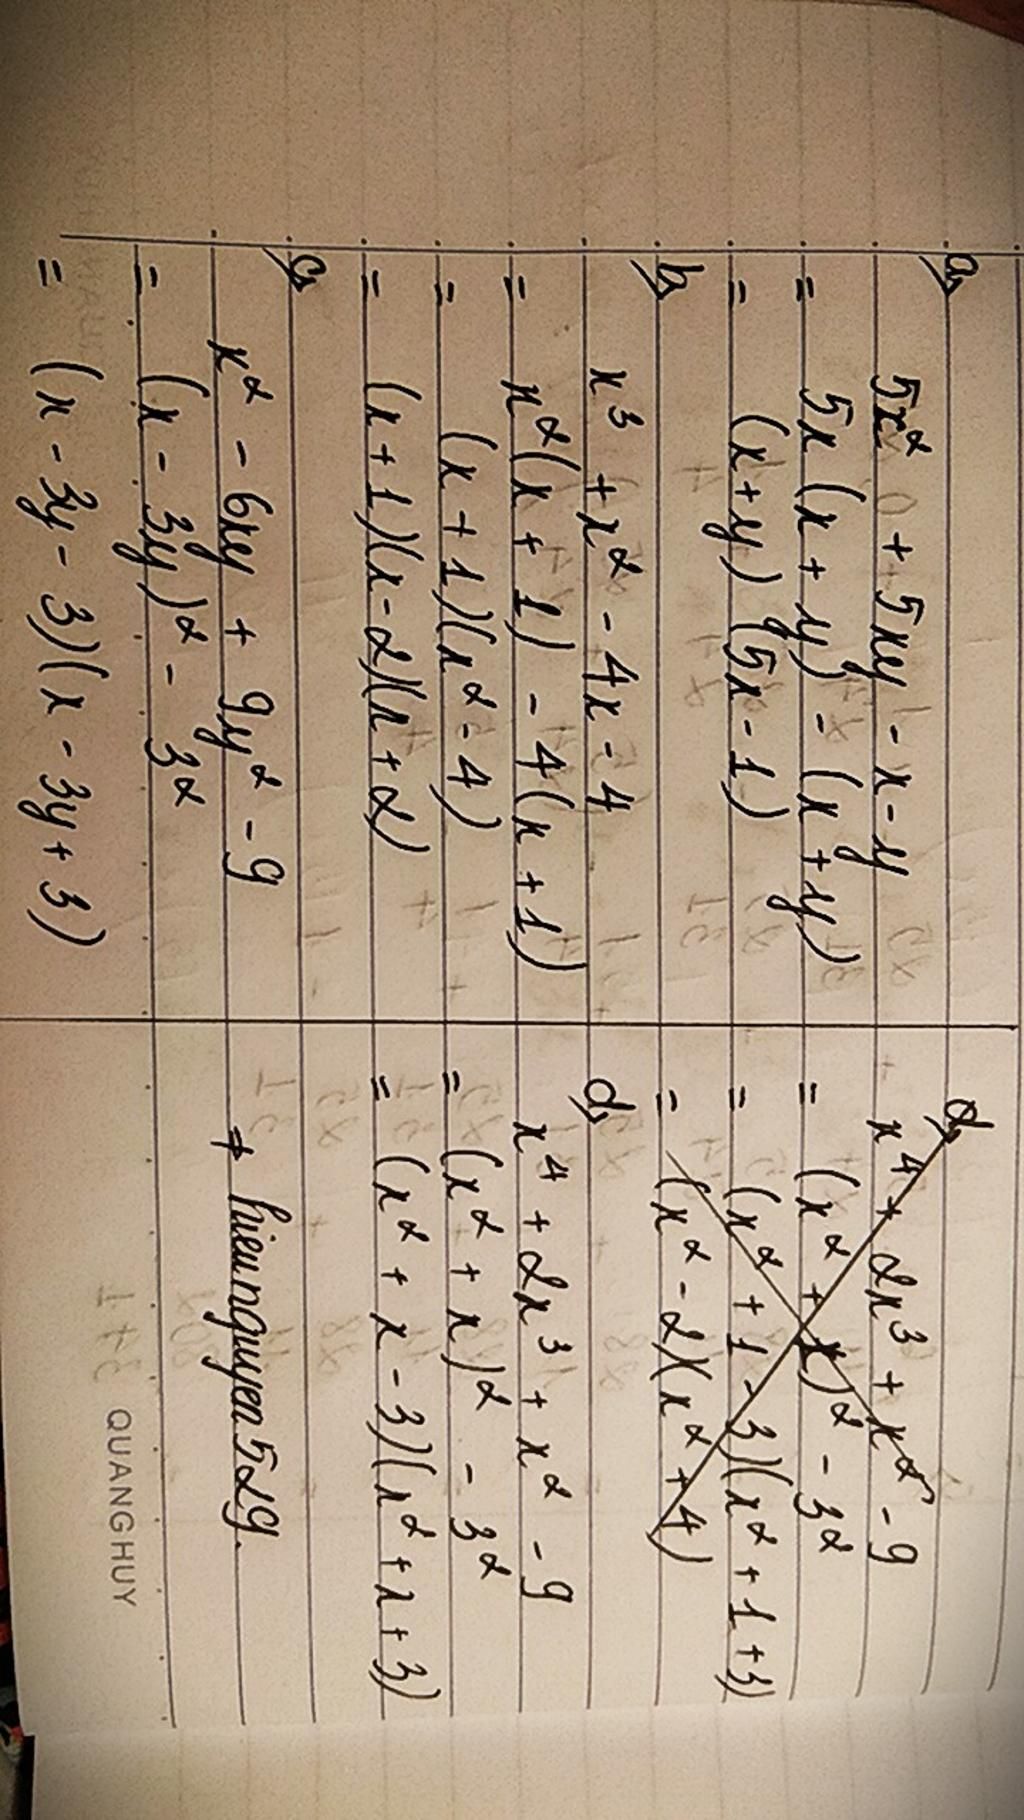 a,
5x² + 5xy - x - y
= 5x (x + y) - (x + y)
= (x + y) (5x - 1)
b,
x³ + x² - 4x - 4
= x² (x + 1) - 4 (x + 1)
= (x + 1)(x² - 4)
= (x + 1)(x - 2)(x + 2)
c,
x² - 6xy + 9y² - 9
= (x - 3y)² - 3²
= (x - 3y - 3)(x - 3y + 3)
d,
x⁴ + 2x³ + x² - 9
= (x² + x)² - 3²
= (x² + 1 - 3)(x² + 1 + 3)
= (x² - 2)(x² + 4)
d,
x⁴ + 2x³ + x² - 9
= (x² + x)² - 3²
= (x² + x - 3)(x² + x + 3)
+ hieunguyen529.
QUANGHUY